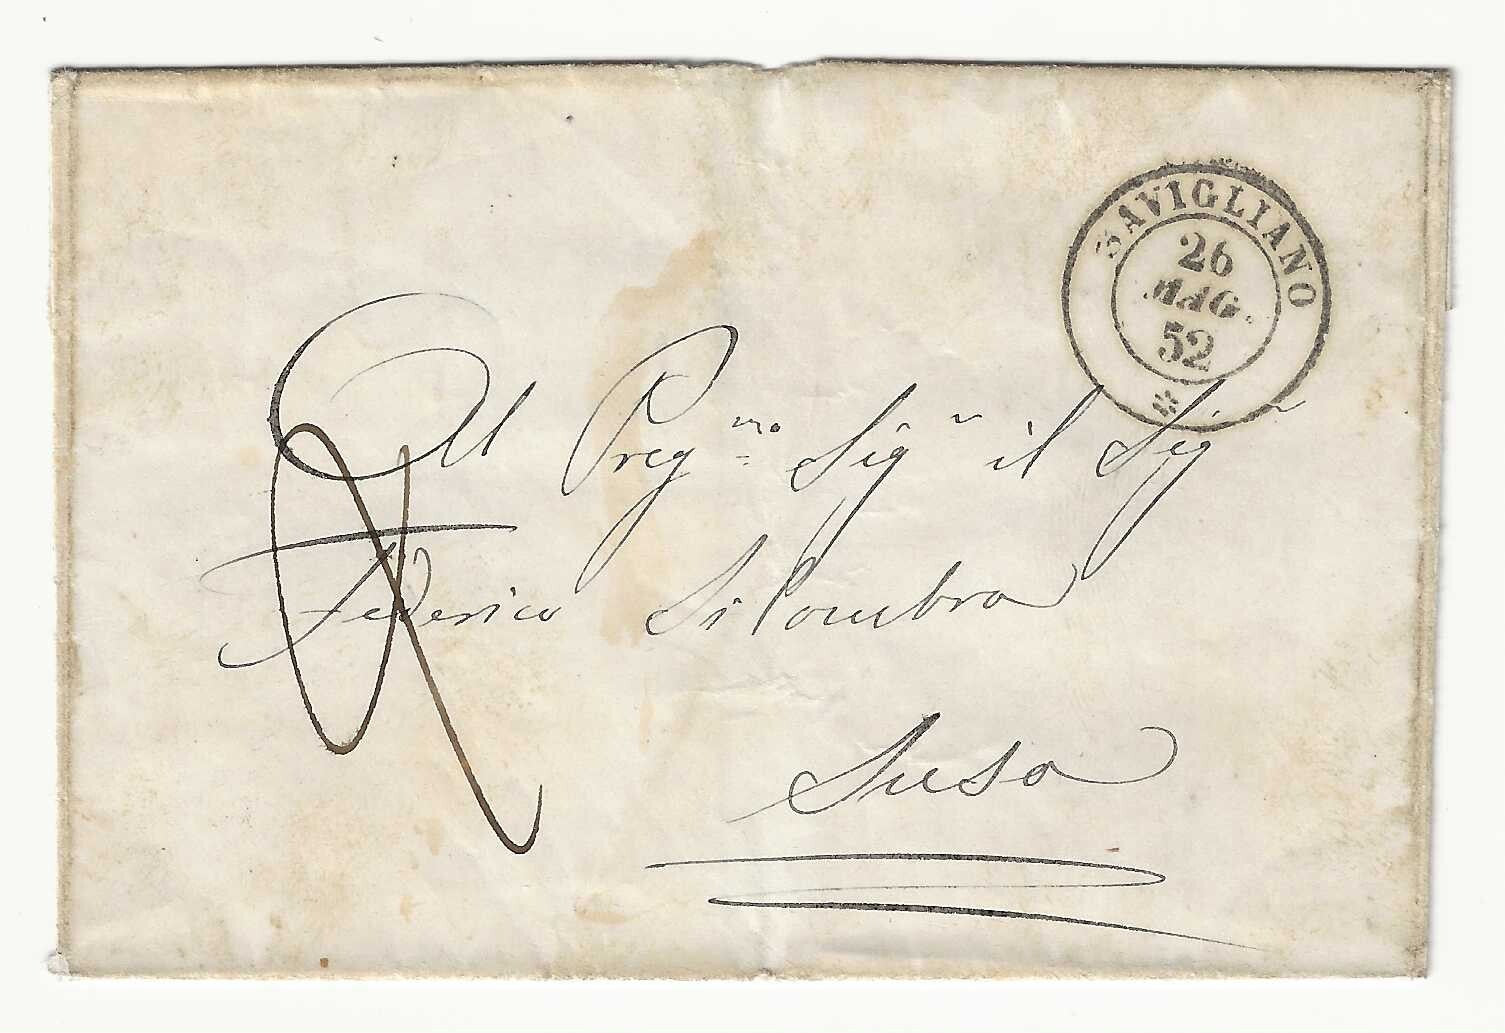 SAVIGLIANO
26
MAG.
52
Al Preg.mo Sig.r il Sig.r
Federico
Susa